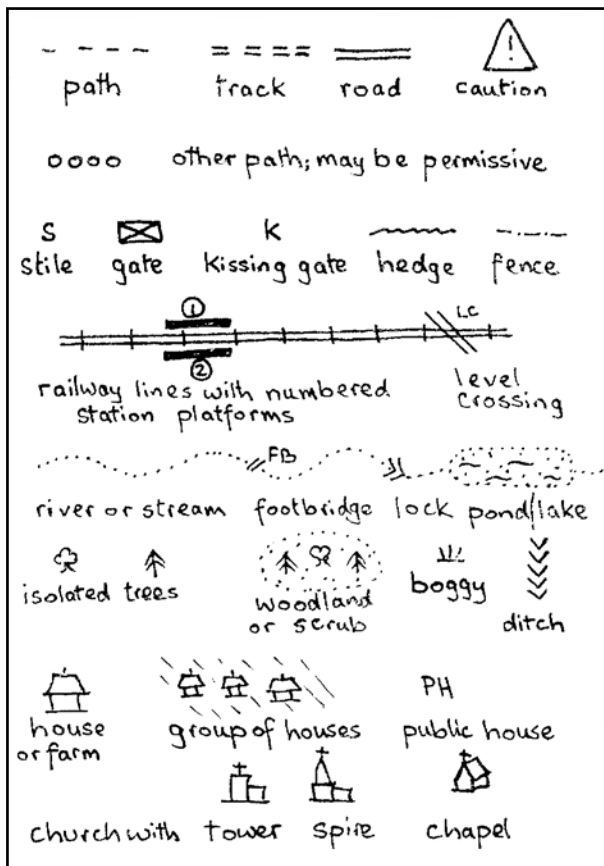 !
path track road caution
other path; may be permissive
S K
stile gate kissing gate hedge fence
① LC
②
railway lines with numbered
station platforms
level
crossing
FB
river or stream footbridge lock pond/lake
isolated trees
woodland
or scrub
boggy
ditch
PH
house
or farm
group of houses public house
church with tower spire chapel